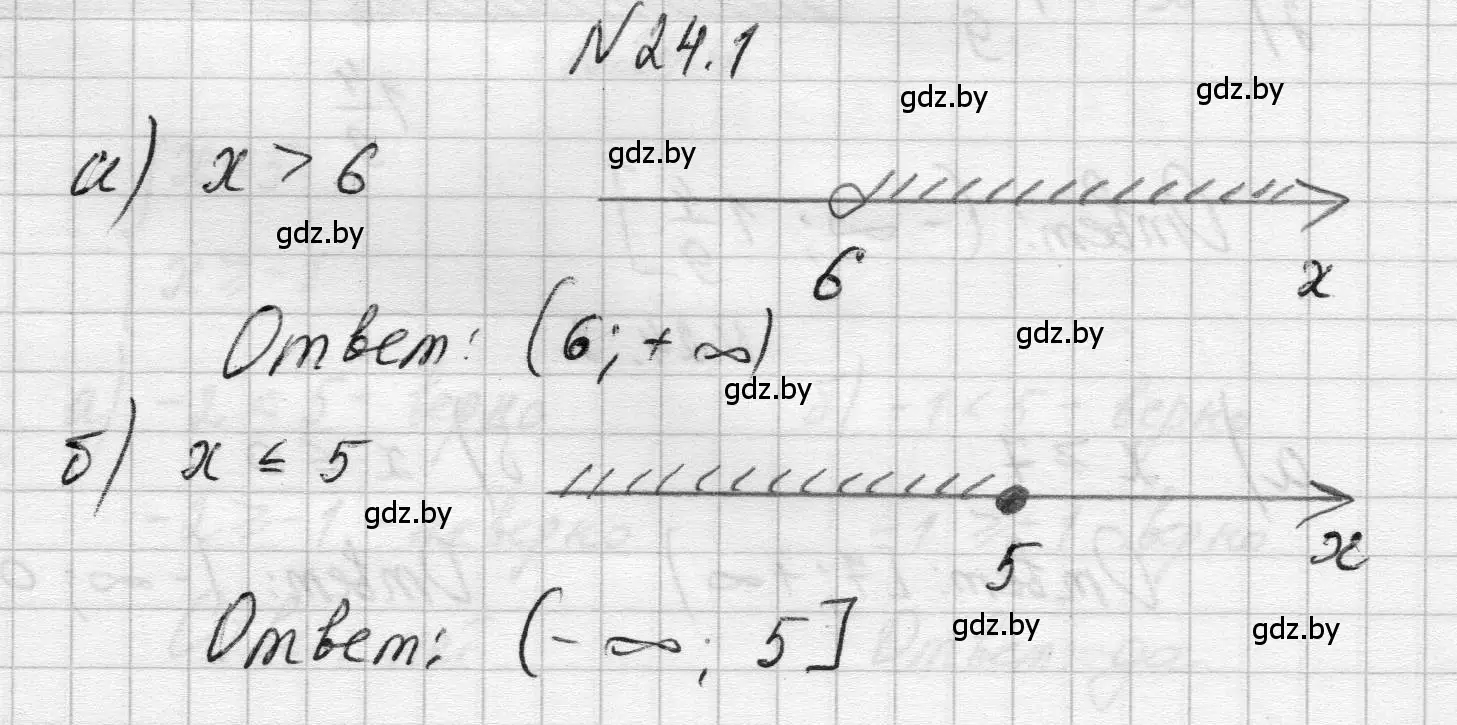 N 24.1
gdz.by
gdz.by
а) x > 6
gdz.by
gdz.by
6
x
Ответ: (6; + ∞)
gdz.by
gdz.by
б) x ≤ 5
gdz.by
5
x
Ответ: (- ∞; 5]
gdz.by
gdz.by